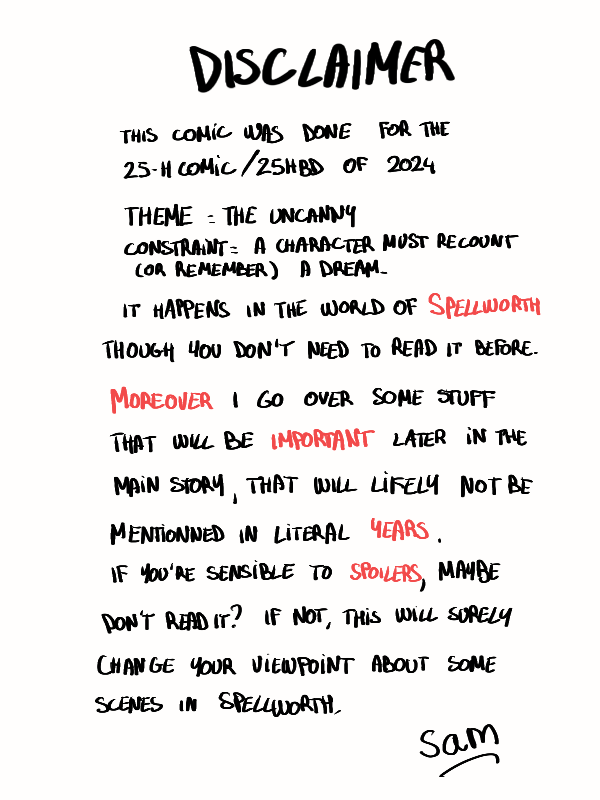 DISCLAIMER
THIS COMIC WAS DONE FOR THE
25-H COMIC/25HBD OF 2024
THEME = THE UNCANNY
CONSTRAINT = A CHARACTER MUST RECOUNT
(OR REMEMBER) A DREAM.
IT HAPPENS IN THE WORLD OF SPELLWORTH
THOUGH YOU DON'T NEED TO READ IT BEFORE.
MOREOVER I GO OVER SOME STUFF
THAT WILL BE IMPORTANT LATER IN THE
MAIN STORY, THAT WILL LIKELY NOT BE
MENTIONNED IN LITERAL YEARS.
IF YOU'RE SENSIBLE TO SPOILERS, MAYBE
DON'T READ IT? IF NOT, THIS WILL SURELY
CHANGE YOUR VIEWPOINT ABOUT SOME
SCENES IN SPELLWORTH.
Sam